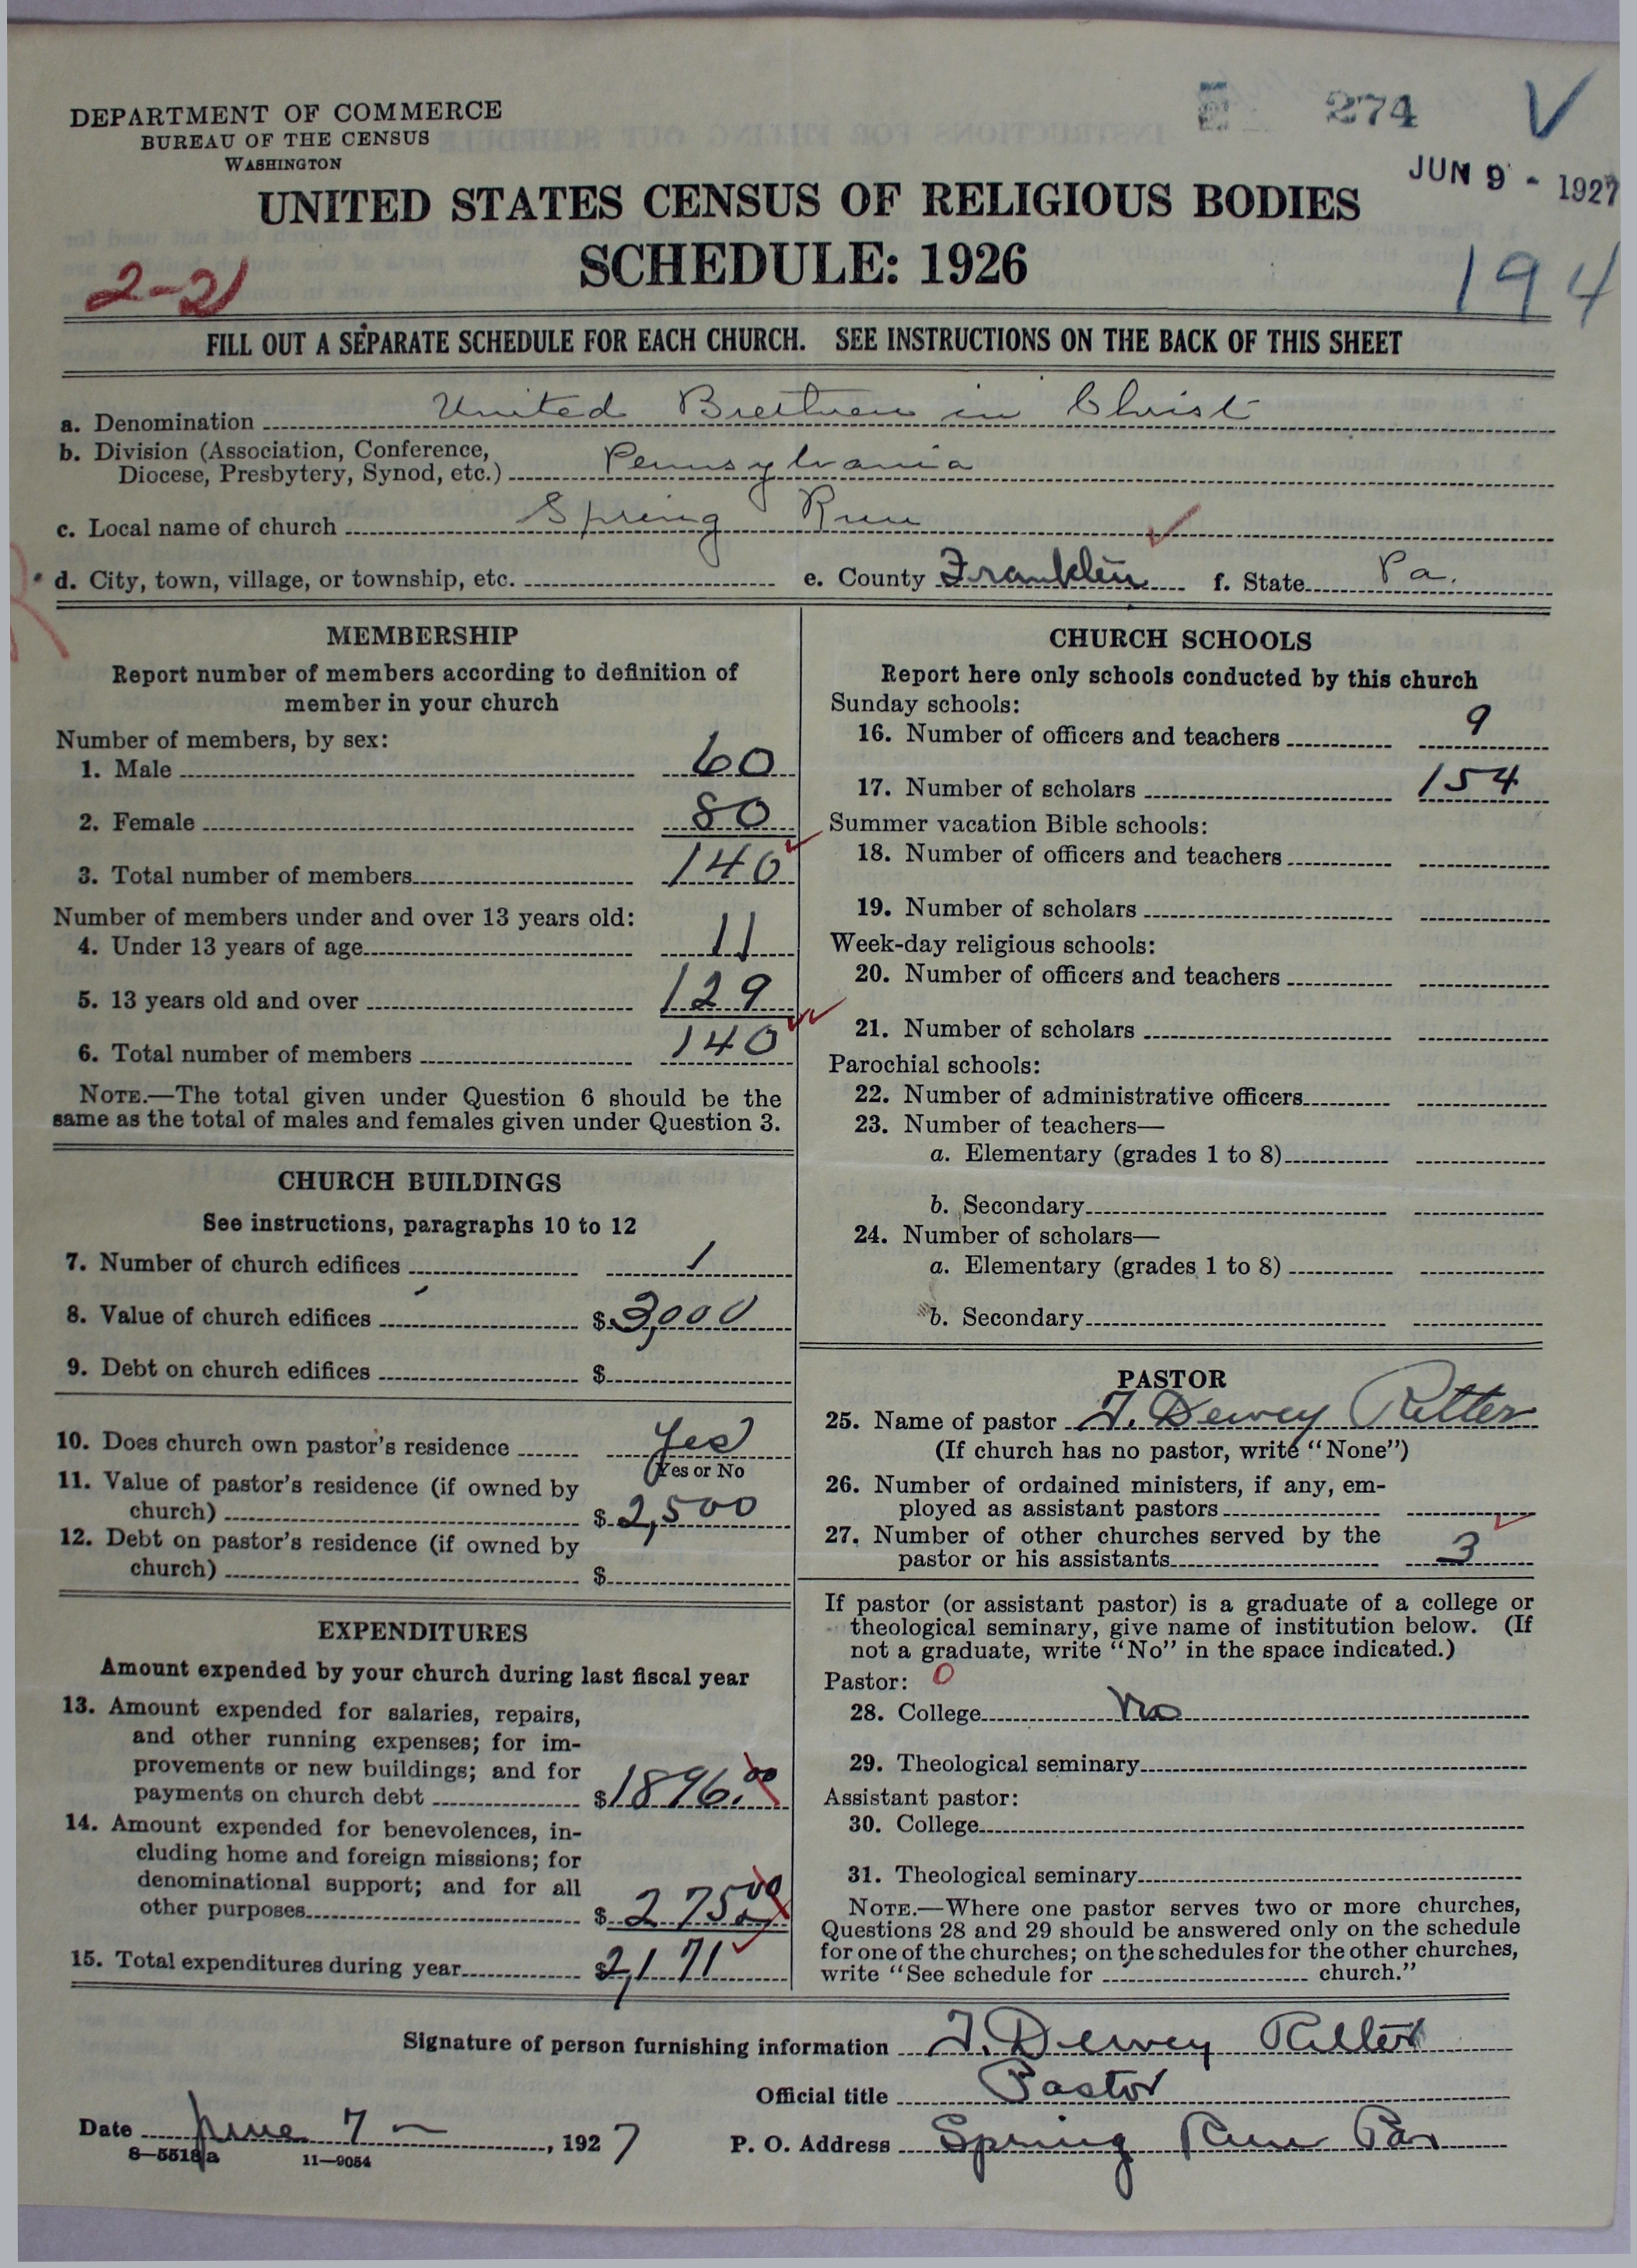 DEPARTMENT OF COMMERCE
BUREAU OF THE CENSUS
WASHINGTON
274
JUN 9 - 1927
UNITED STATES CENSUS OF RELIGIOUS BODIES
SCHEDULE: 1926
2-21
194
FILL OUT A SEPARATE SCHEDULE FOR EACH CHURCH. SEE INSTRUCTIONS ON THE BACK OF THIS SHEET
a. Denomination United Brethren in Christ
b. Division (Association, Conference,
Diocese, Presbytery, Synod, etc.) Pennsylvania
c. Local name of church Spring Run
d. City, town, village, or township, etc. e. County Franklin f. State Pa.
MEMBERSHIP
Report number of members according to definition of
member in your church
Number of members, by sex:
1. Male 60
2. Female 80
3. Total number of members 140
Number of members under and over 13 years old:
4. Under 13 years of age 11
5. 13 years old and over 129
6. Total number of members 140
NOTE.—The total given under Question 6 should be the
same as the total of males and females given under Question 3.
CHURCH BUILDINGS
See instructions, paragraphs 10 to 12
7. Number of church edifices 1
8. Value of church edifices $3,000
9. Debt on church edifices $
10. Does church own pastor's residence Yes
Yes or No
11. Value of pastor's residence (if owned by
church) $2,500
12. Debt on pastor's residence (if owned by
church) $
EXPENDITURES
Amount expended by your church during last fiscal year
13. Amount expended for salaries, repairs,
and other running expenses; for im-
provements or new buildings; and for
payments on church debt $1896.00
14. Amount expended for benevolences, in-
cluding home and foreign missions; for
denominational support; and for all
other purposes $275.00
15. Total expenditures during year $2,171
CHURCH SCHOOLS
Report here only schools conducted by this church
Sunday schools:
16. Number of officers and teachers 9
17. Number of scholars 154
Summer vacation Bible schools:
18. Number of officers and teachers
19. Number of scholars
Week-day religious schools:
20. Number of officers and teachers
21. Number of scholars
Parochial schools:
22. Number of administrative officers
23. Number of teachers—
a. Elementary (grades 1 to 8)
b. Secondary
24. Number of scholars—
a. Elementary (grades 1 to 8)
b. Secondary
PASTOR
25. Name of pastor F. Dewey Ritter
(If church has no pastor, write "None")
26. Number of ordained ministers, if any, em-
ployed as assistant pastors
27. Number of other churches served by the
pastor or his assistants 3
If pastor (or assistant pastor) is a graduate of a college or
theological seminary, give name of institution below. (If
not a graduate, write "No" in the space indicated.)
Pastor: 0
28. College No
29. Theological seminary
Assistant pastor:
30. College
31. Theological seminary
NOTE.—Where one pastor serves two or more churches,
Questions 28 and 29 should be answered only on the schedule
for one of the churches; on the schedules for the other churches,
write "See schedule for church."
Signature of person furnishing information F. Dewey Ritter
Official title Pastor
Date June 7 —, 1927 P. O. Address Spring Run Pa
8—5518a 11—9054